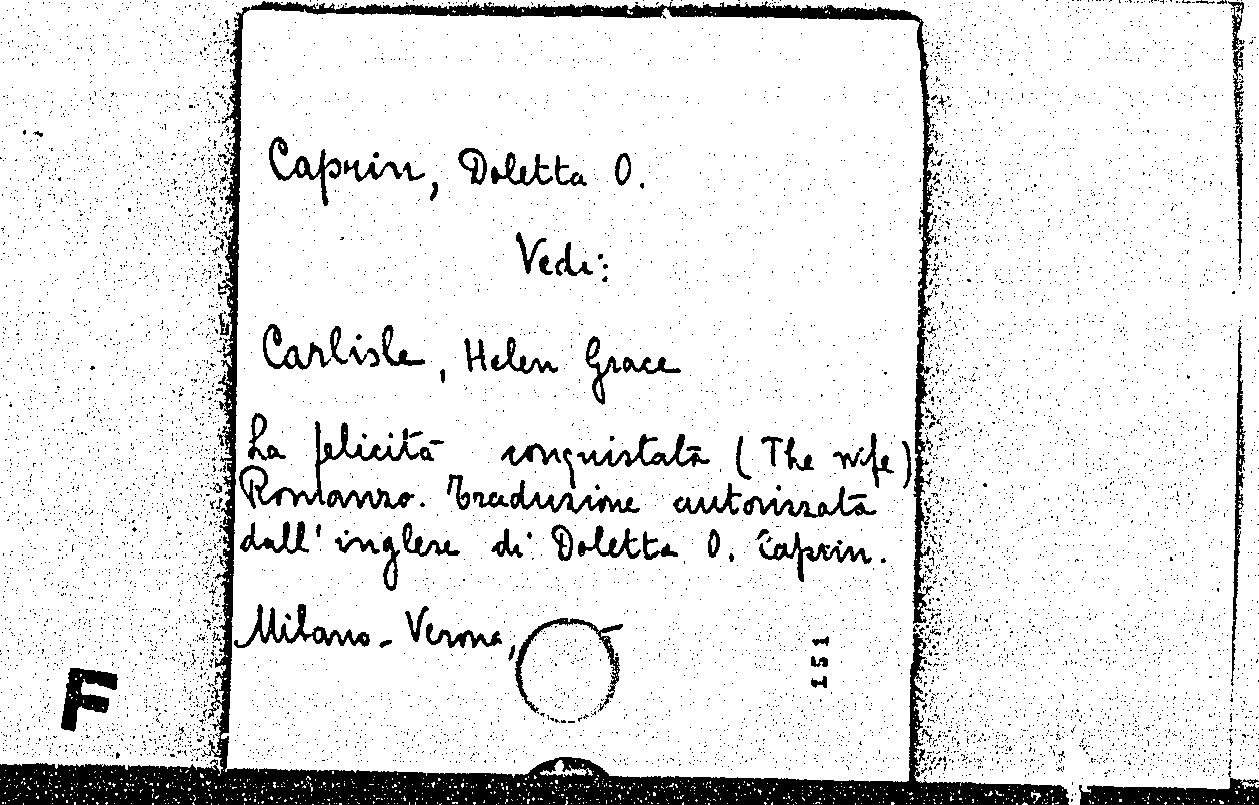 Caprin, Doletta O.
Vedi:
Carlisle, Helen Grace
La felicità conquistata (The wife)
Romanzo. Traduzione autorizzata
dall' inglese di Doletta O. Caprin.
Milano - Verona,
151
F